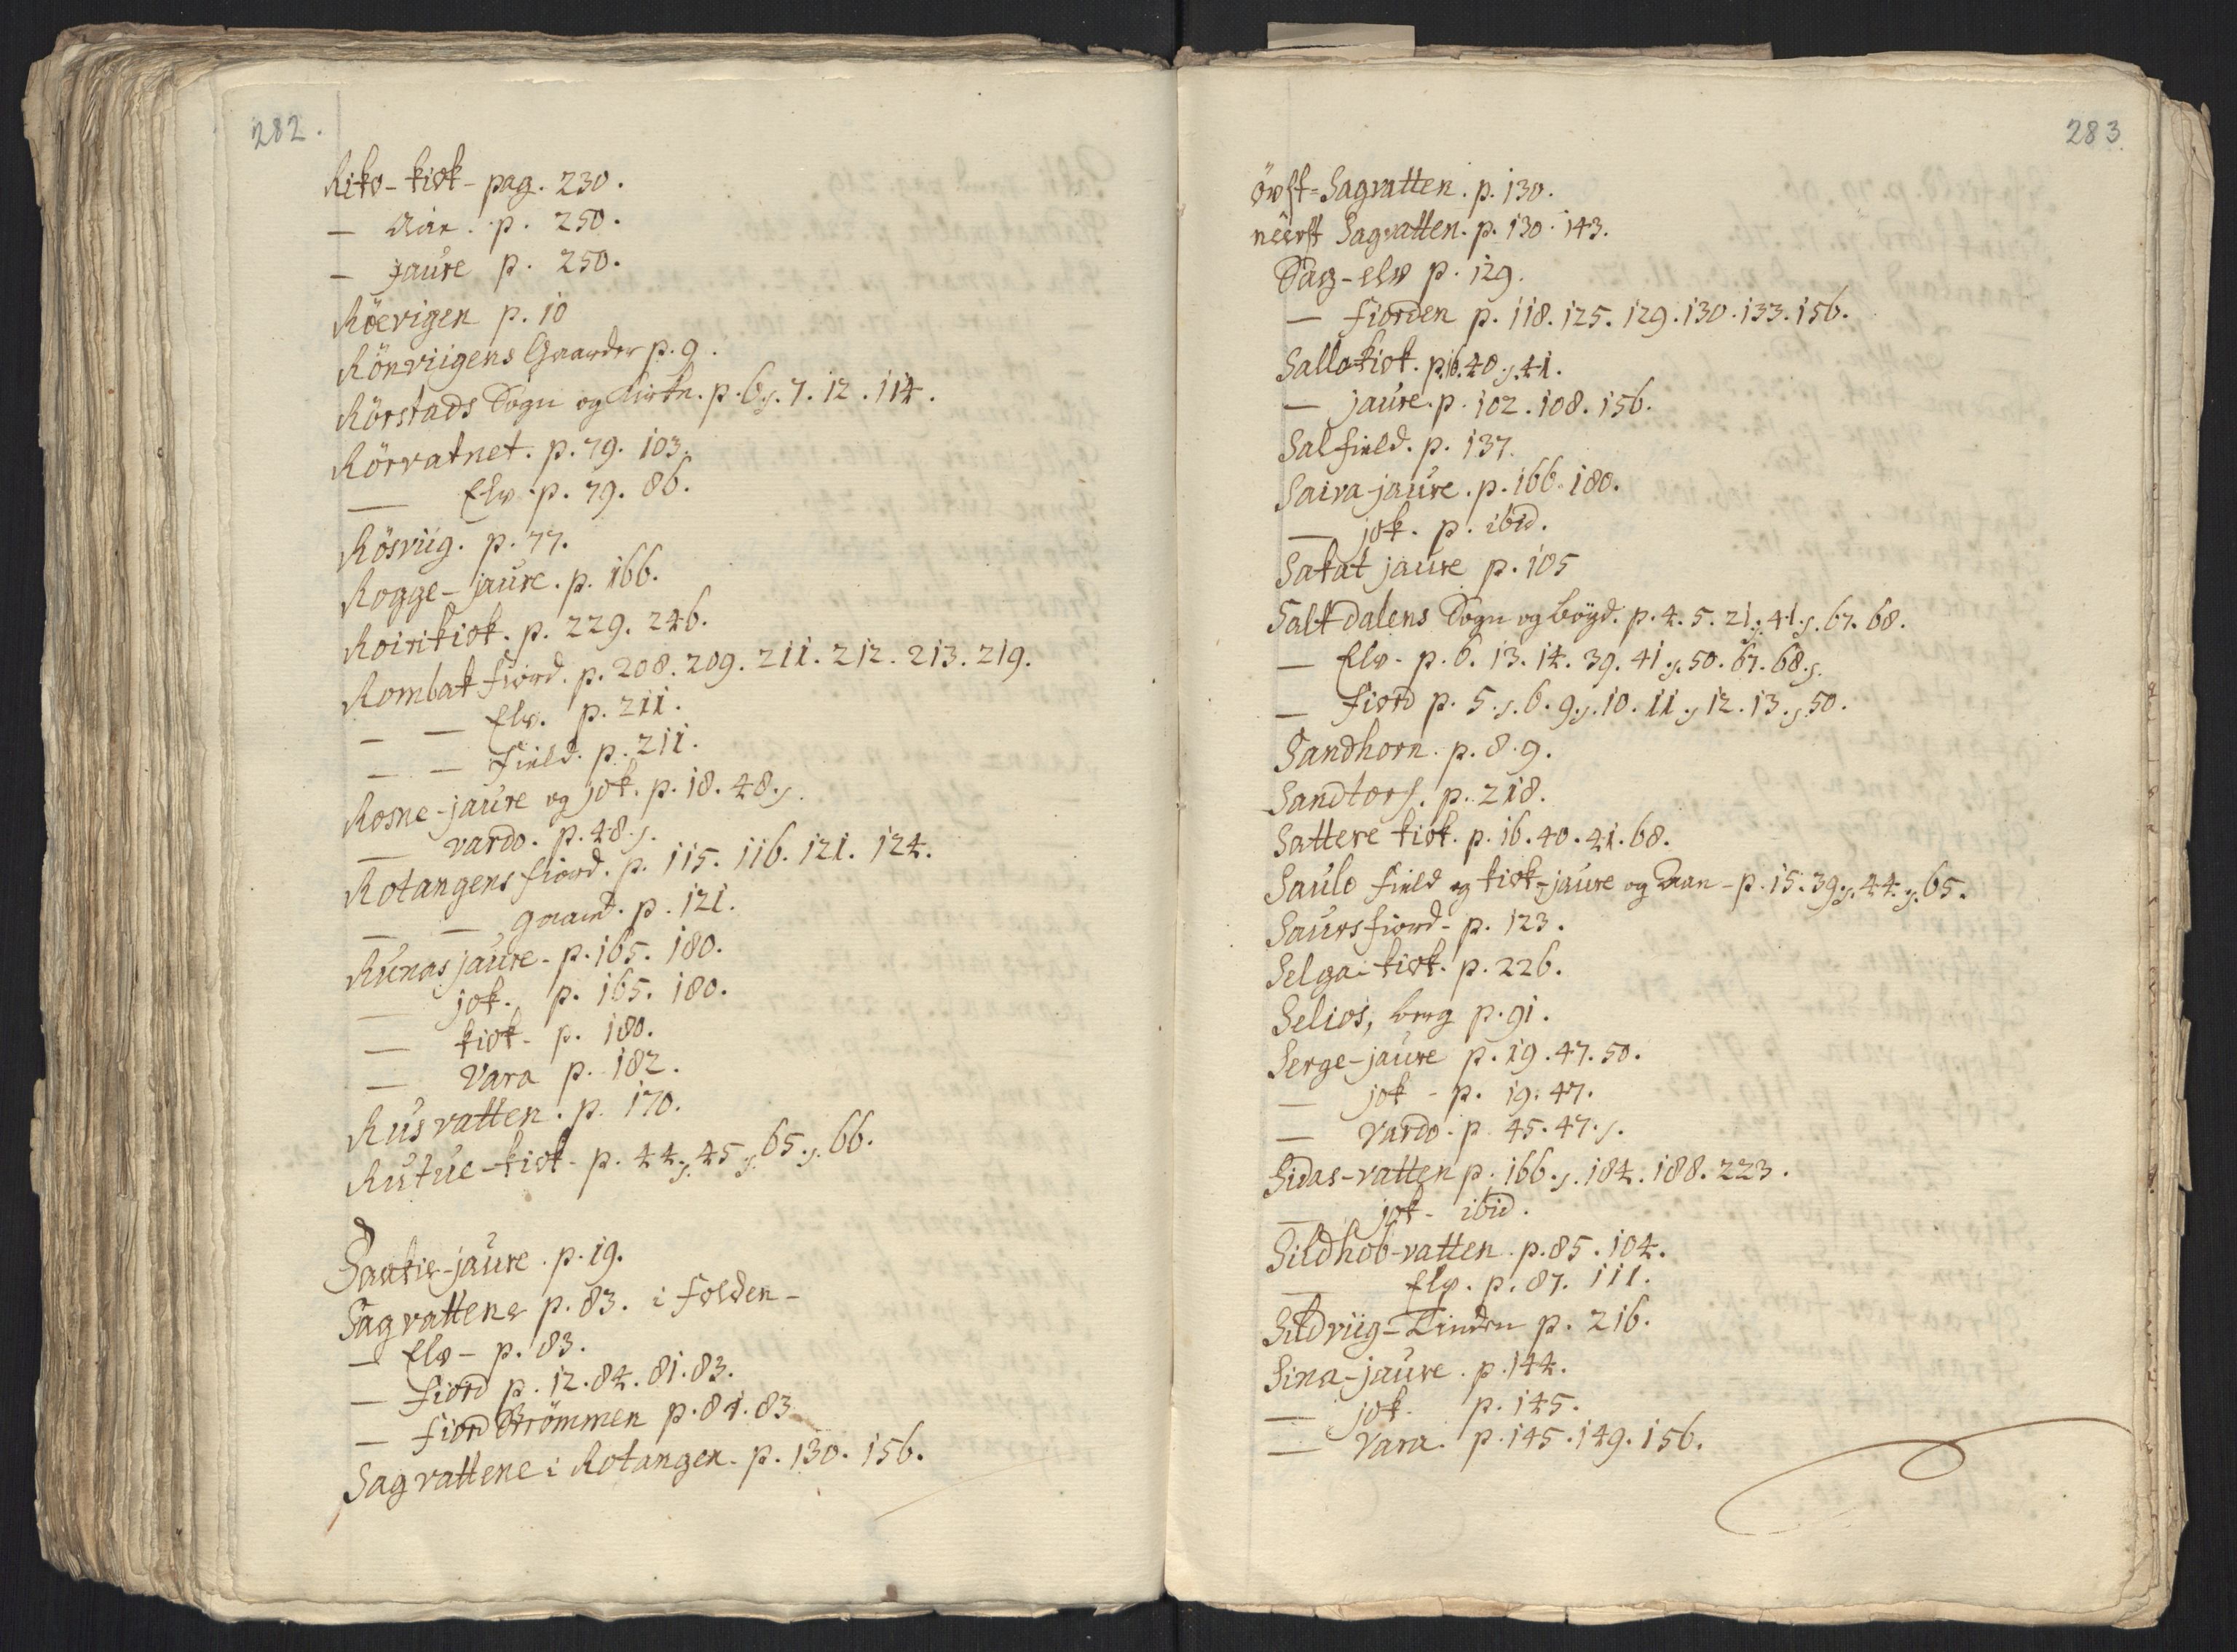 282.
Riko-kisk- pag. 230.
— Aar. p. 250.
— Jaure p. 250.
Röevigen p. 10
Rönviigens Gaarder p. 9.
Rörstads Sogn og Kirke. p. 6.s. 7. 12. 114.
Rörvatnet. p. 79. 103.
— Elv. p. 79. 86.
Rösviig. p. 77.
Rogge-jaure. p. 166.
Roirikisk. p. 229. 246.
Rombak fiord. p. 208. 209. 211. 212. 213. 219.
— — Elv. p. 211.
— — Field. p. 211.
Rosne-jaure og jok. p. 18. 48.s.
— vardo. p. 48.s.
Rotangens fiord. p. 115. 116. 121. 124.
— — gaard. p. 121.
Runas jaure - p. 165. 180.
— jok. p. 165. 180.
— kisk - p. 180.
— Vara p. 182.
Rusvatten. p. 170.
Rutue-kisk- p. 44.s. 45.s. 65.s. 66.
-jaure. p. 19.
Sagvattene p. 83. i Folden-
— Elv - p. 83.
— Fiord p. 12. 84. 81. 83.
— Fiord Strömmen p. 81. 83
Sagvattene i Rotangen. p. 130. 156.
283.
övst-Sagvatten. p. 130.
neerst Sagvatten. p. 130. 143.
Sag-elv p. 129.
— fiorden p. 118. 125. 129. 130. 133. 156.
Sallokisk. p. 16. 40.s. 41.
— jaure. p. 102. 108. 156.
Salfield. p. 137.
Saiva-jaure. p. 166. 180.
— jok. p. ibid.
Sakat jaure p. 105
Saltdalens Sogn og böyd. p. 4. 5. 21.s. 41.s. 67. 68.
— Elv - p. 6. 13. 14. 39. 41.s. 50. 67. 68.s.
— Fiord p. 5.s. 6. 9.s. 10. 11.s. 12. 13.s. 50.
Sandhorn. p. 8. 9.
Sandtorf. p. 218.
Sattere kisk. p. 16. 40. 41. 68.
Saulo field og kisk-jaure og Aan - p. 15. 39.s. 44.s. 65.
Saursfiord - p. 123.
Selgai-kisk. p. 226.
Selios, berg p. 91.
Serge-jaure p. 19. 47. 50.
— jok - p. 19. 47.
— Vardo. p. 45. 47.s.
Sidas-vatten p. 166.s. 184. 188. 223.
— jok - ibid.
Sildhob-vatten. p. 85. 104.
— Elv. p. 87. 111.
Sildviig-Tinden p. 216.
Sina-jaure. p. 144.
— jok. p. 145.
— Vara. p. 145. 149. 156.